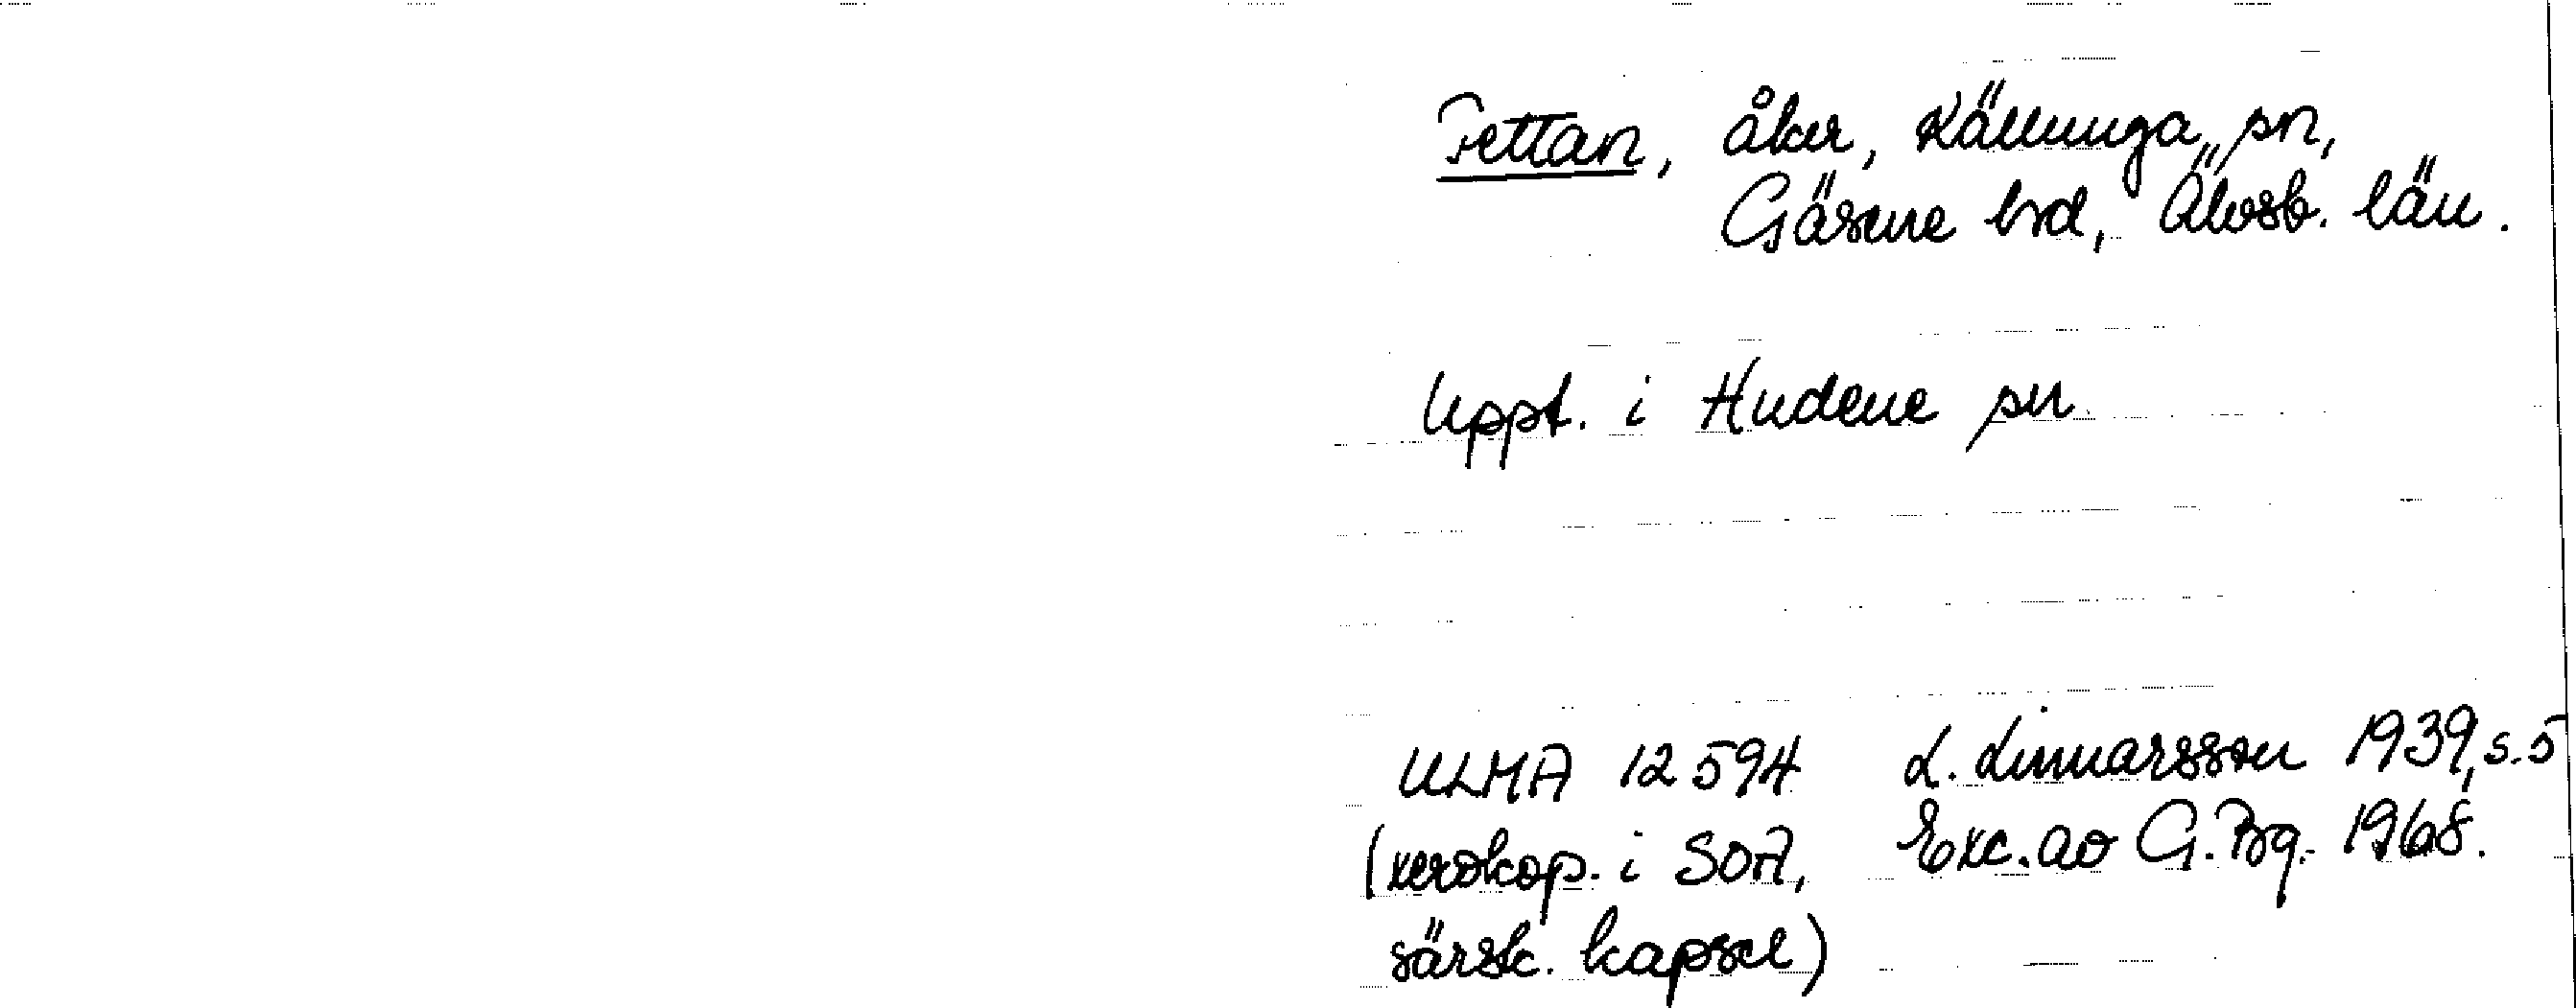 Fettan, åker, Källunga sn,
Gäsene hd, Älvsb. län.
Uppt. i Hudene sn
ULMA 12594 L. Linnarsson 1939, s. 5
(xerokop. i SOA, Exc. av G. Bg. 1968.
särsk. kapsel)